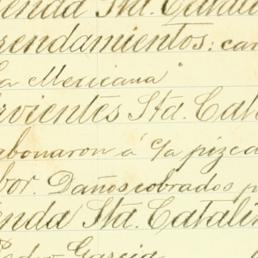 enda Sta. Catali
rrendamientos: car
La Mexicana"
rvientes Sta. Cata
abonaron á c/a pizca
bor. Daños cobrados p
enda Sta. Catalin
Pedro Garcia